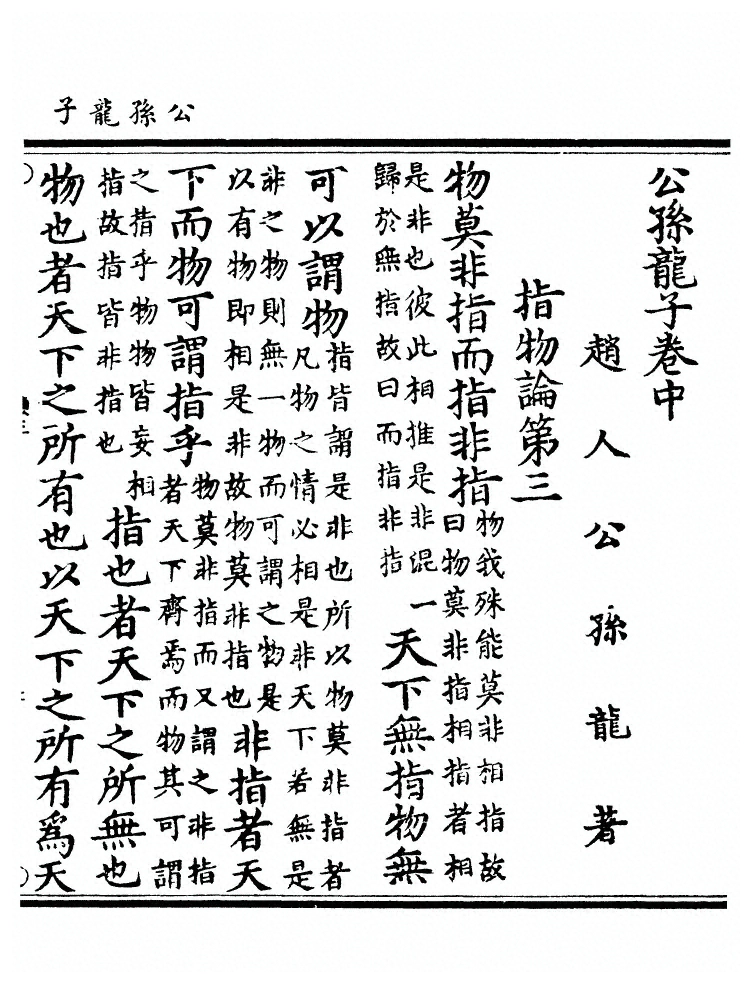 公孫龍子
公孫龍子卷中
趙人公孫龍著
指物論第三
物莫非指而指非指物我殊能莫非相指故曰物莫非指相指者相
是非也彼此相推是非混一歸於無指故曰而指非指天下無指物無
可以謂物指皆謂是非也所以物莫非指者凡物之情必相是非天下若無是
非之物則無一物而可謂之物是以有物即相是非故物莫非指也非指者天
下而物可謂指乎物莫非指而又謂之非指者天下齊焉而物其可謂
之指乎物物皆妄相指故指皆非指也指也者天下之所無也
物也者天下之所有也以天下之所有爲天